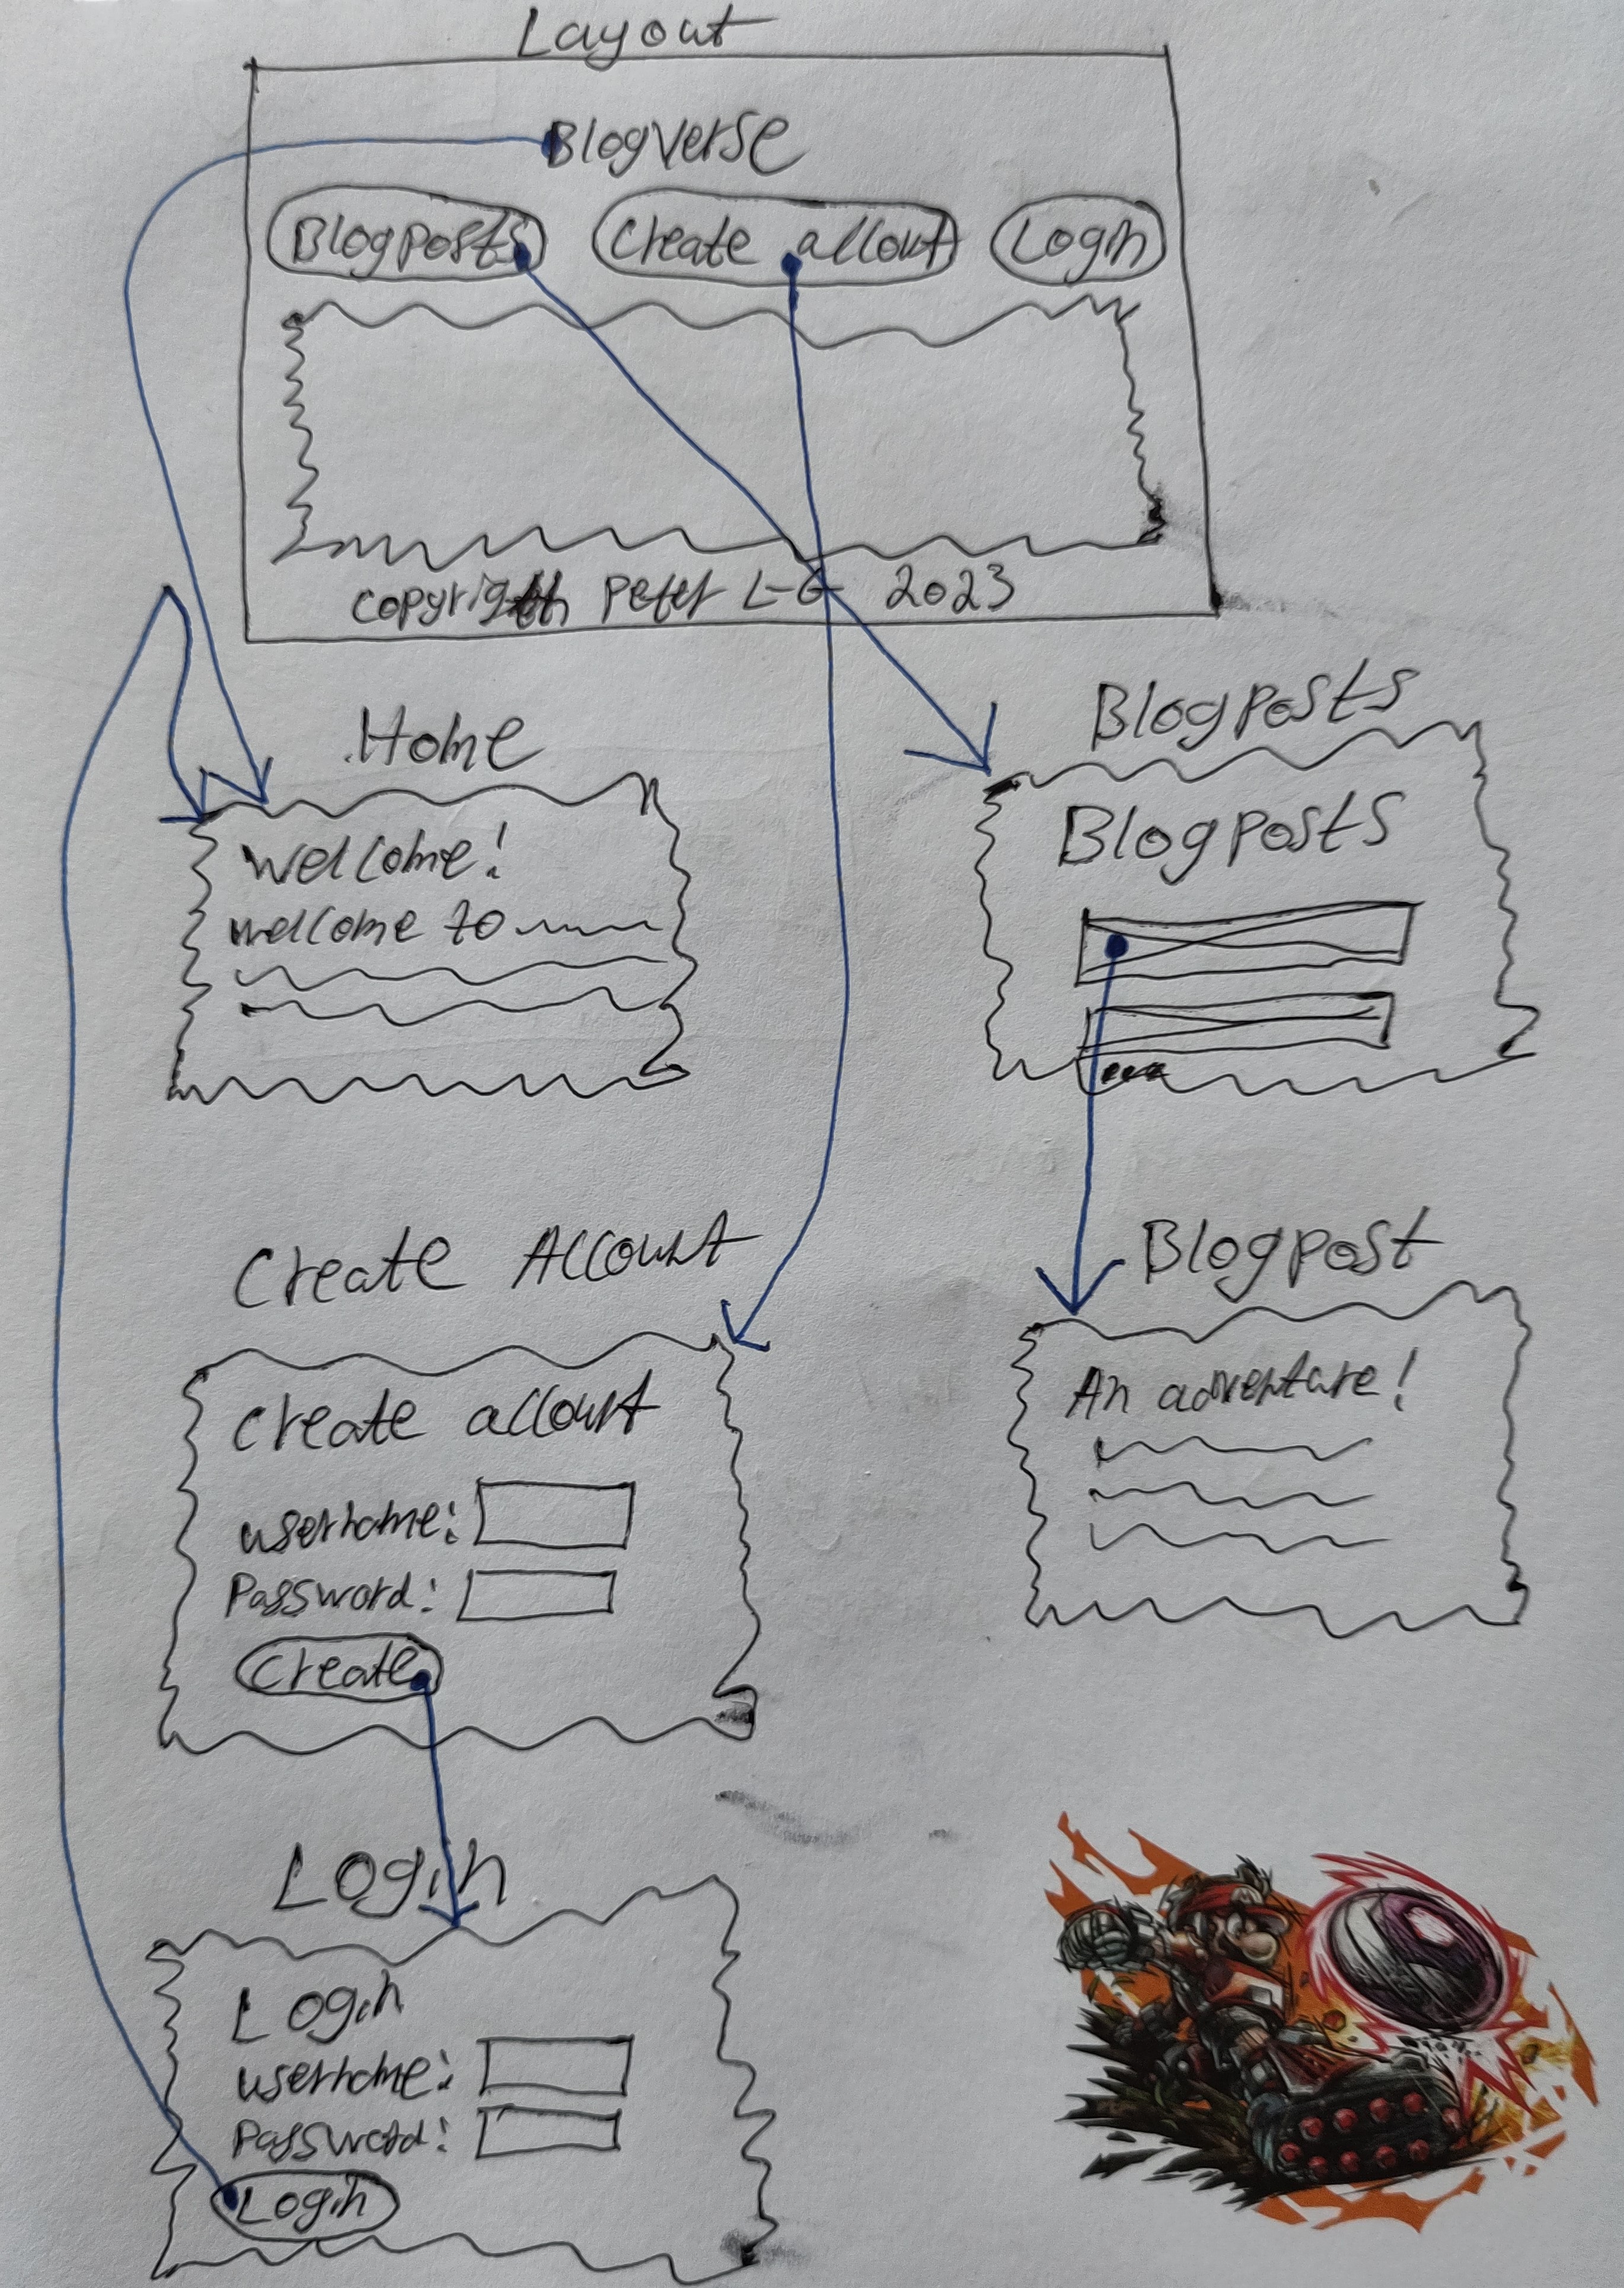 Layout
Blogverse
Blogposts Create account Login
copyright Peter L-G 2023
Home
Welcome!
welcome to
Blogposts
Blogposts
...
Create Account
Create account
username:
Password:
Create
Blogpost
An adventure!
Login
Login
username:
Password:
Login